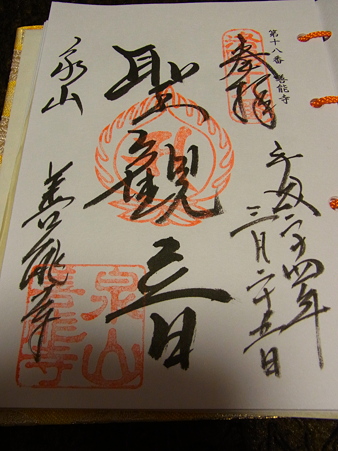 第十八番 善能寺
奉拝
平成二十四年
三月二十五日
聖観音
泉山
善能寺
泉山
善能寺